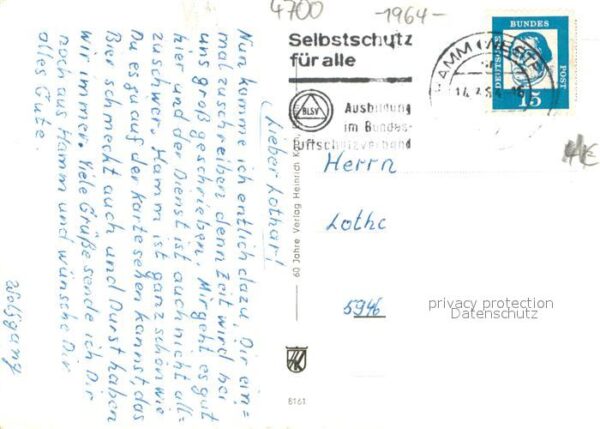 4700
-1964-
Selbstschutz
für alle
BLSV
Ausbildung
im Bundes-
luftschutzverband
HAMM (WESTF
14.
DEUTSCHE BUNDES POST
15
Lieber Lothar!
Nun komme ich entlich dazu, Dir ein=
mal zuschreiben denn Zeit wird bei
uns groß geschrieben. Mir geht es gut
hier und der Dienst ist auch nicht all=
zuschwer. Hamm ist ganz schön wie
Du es ja auf der Karte sehen kannst, das
Bier schmeckt auch und Durst haben
wir immer. Viele Grüße sende ich Dir
noch aus Hamm und wünsche Dir
alles Gute.
Wolfgang
60 Jahre Verlag Heinrich
Herrn
Lotha
5946
privacy protection
Datenschutz
HK
8161